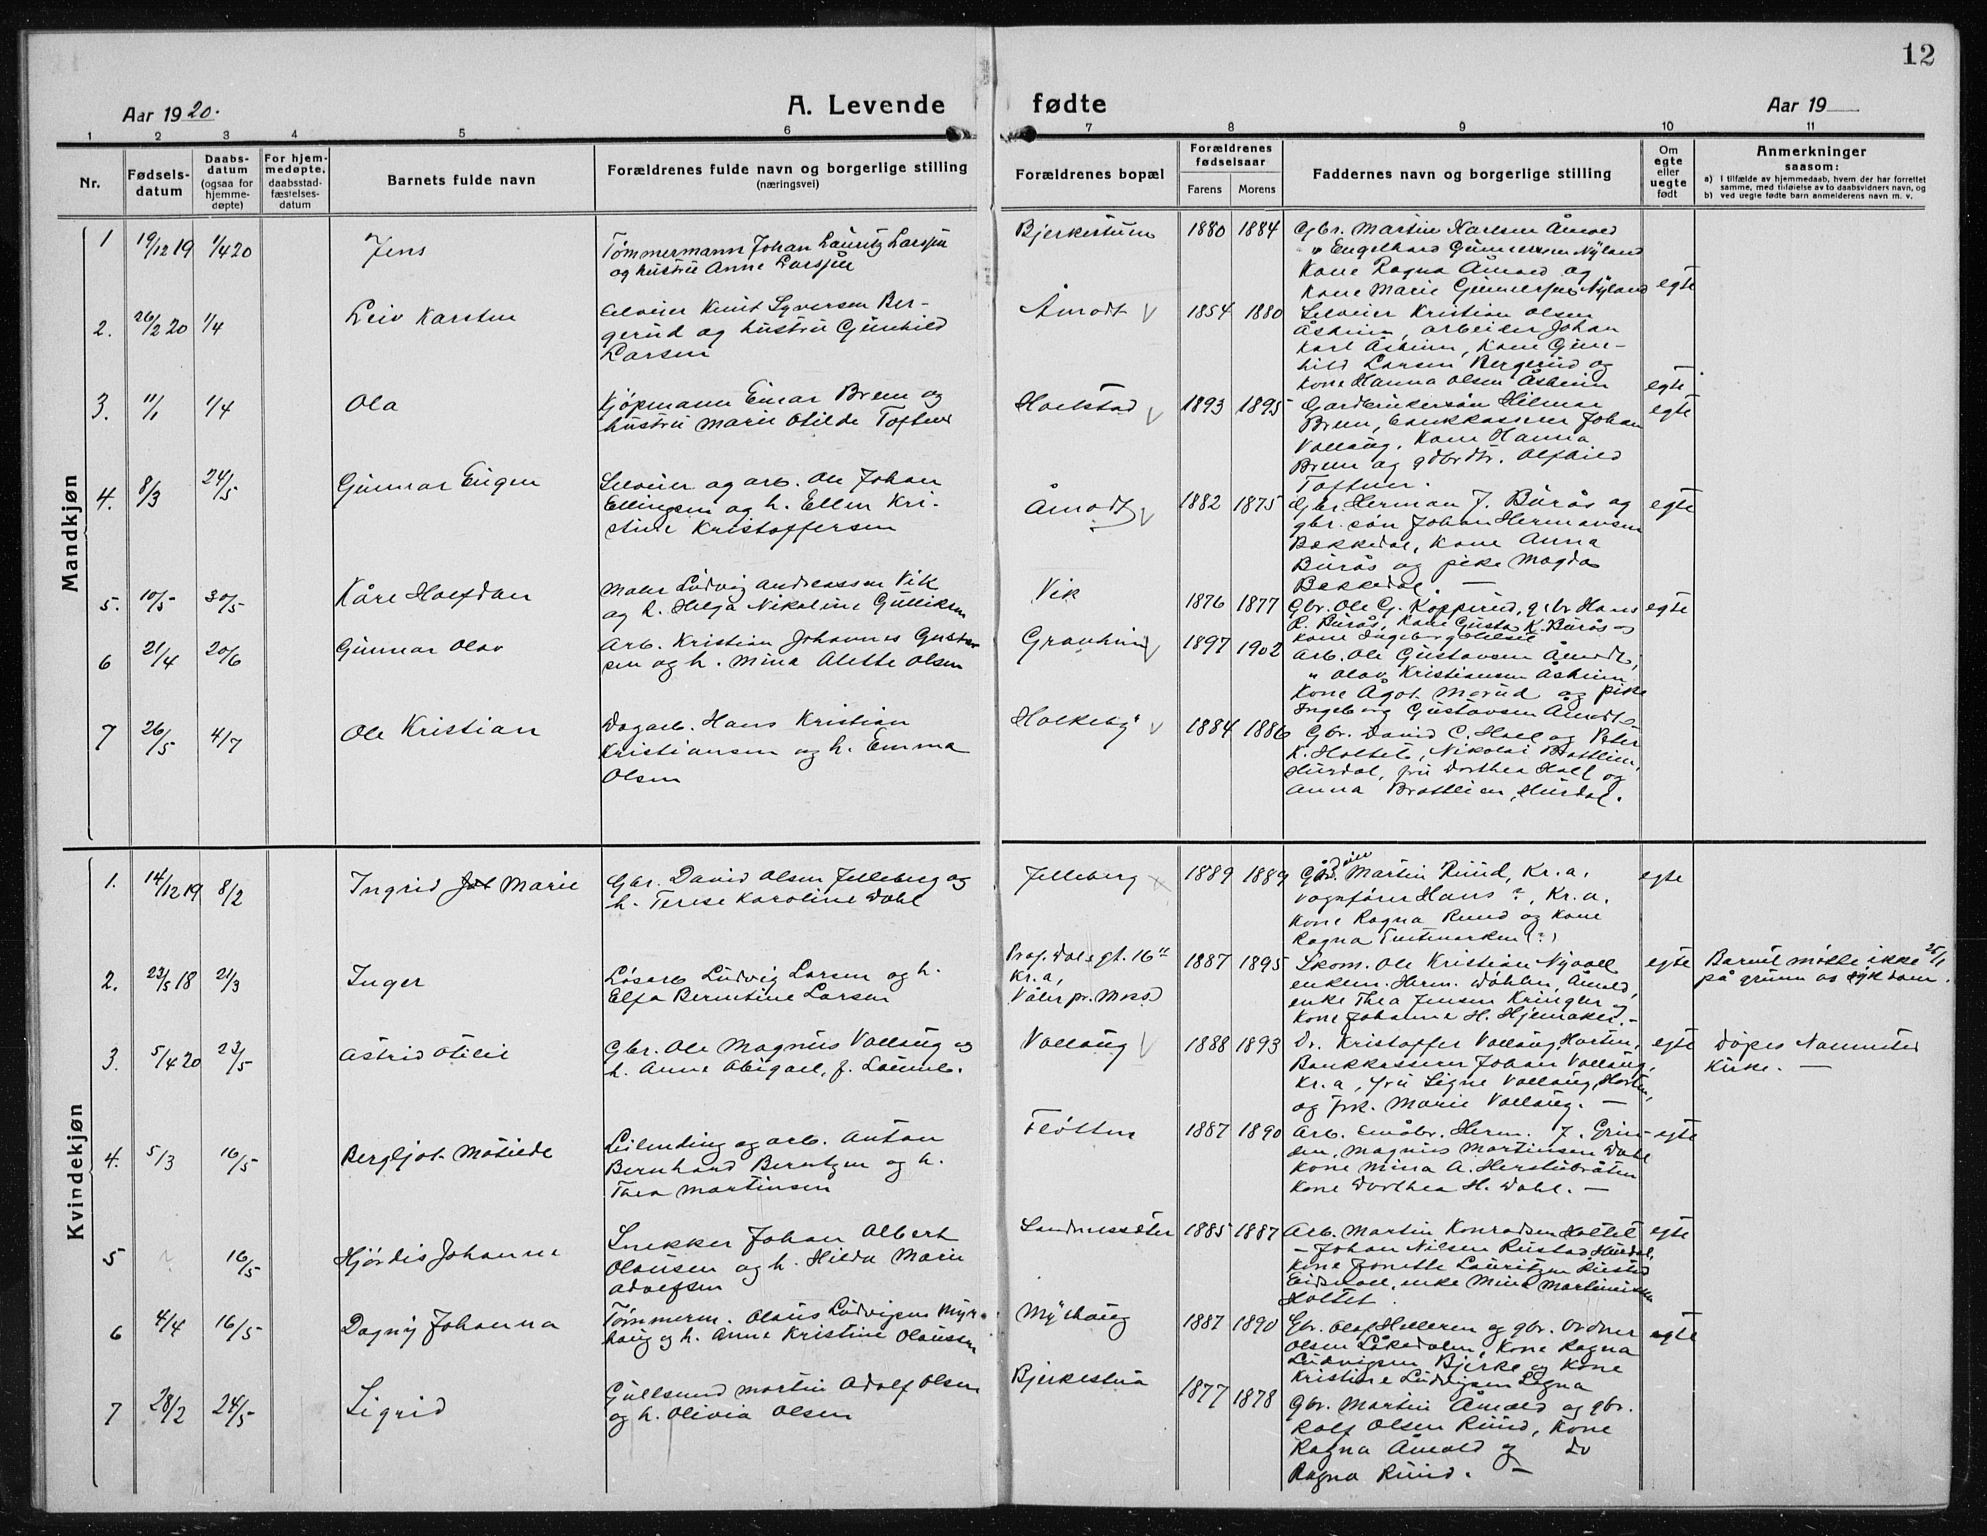 12
Aar 1920.
A. Levende fødte
Aar 19
1 2 3 4 5 6 7 8 9 10 11
Nr.
Fødsels-
datum
Daabs-
datum
(ogsaa for
hjemme-
døpte)
For hjem-
medøpte,
daabsstad-
fæstelses-
datum
Barnets fulde navn
Forældrenes fulde navn og borgerlige stilling
(næringsvei)
Forældrenes bopæl
Forældrenes
fødselsaar
Farens Morens
Faddernes navn og borgerlige stilling
Om
egte
eller
uegte
født
Anmerkninger
saasom:
a) I tilfælde av hjemmedaab, hvem der har forrettet
samme, med tilføielse av to daabsvidners navn, og
b) ved uegte fødte barn anmelderens navn m. v.
Mandkjøn
1 19/12 19 1/4 20 Jens
Tømmermann Johan Lauritz Larsen
og hustru Anne
1880 1884
Gbr. Martin Karlsen Åmold
" Engelhard Gunnersen Nyland
Kone Ragna Åmold og
Kone Marie Gunnersen Nyland
egte
2. 26/2 20 1/4 Leiv Karsten
Selveier Knut Syversen Ber-
gerud og hustru Gunhild
Larsen
Åmodt 1854 1880
Selveier Kristian Olsen
Åsheim, arbeider Johan
Karl Åsheim, Kone Gun-
hild Larsen Bergerud og
Kone Hanna Olsen Åsheim
egte
3. 11/1 1/4 Ola
Kjøpmann Einar Bren og
hustru Marie Otilde Toftner
1893 1895
Gardbrukersøn Hilmar
Bren, Bankkasserer Johan
Vallaug, Kone Hanna
Bren og gdbrdtr. Alfhild
Toftner.
egte
4. 8/3 24/5 Gunnar Eugen
Selveier og arb. Ole Johan
Ellingsen og h. Ellen Kri-
stine Kristoffersen
Åmodt 1882 1875
Gbr. Herman J. Burås og
gbr. søn Johan Hermansen
Bekkedal, Kone Anna
Burås og pike Magda
Bekkedal. —
egte
5. 10/5 30/5 Kåre Halfdan
Maler Ludvig Andreassen Vik
og h. Helga Nikoline Gulliksen
Vik 1876 1877
Gbr. Ole G. Kopperud, gbr. Hans
R. Burås, Kone Gusta K. Burås og
Kone Ingeborg
egte
6 21/4 20/6 Gunnar Olav
Arb. Kristian Johannes Gustav-
sen og h. Mina Alette Olsen
1897 1902
Arb. Ole Gustavsen Åmodt,
" Olav Kristiansen Åsheim
Kone Ågot Morud og pike
Ingeborg Gustavsen Åmodt
7 26/5 4/7 Ole Kristian
Dagarb. Hans Kristian
Kristiansen og h. Emma
Olsen
Holkeby 1884 1886
Gbr. David C. Holl og Peter
K. Holtet, Nikolai Brattlien,
Hurdal, fru Dorthea Holl og
Anna Brattlien, Hurdal.
Kvindekjøn
1. 14/12 19 8/2 Ingrid Marie
Gbr. David Olsen Jelleberg og
h. Terese Karoline Dahl
Jelleberg 1889 1889
Martin Ruud, Kr.a,
vognfører Hans ?, Kr.a.
Kone Ragna Ruud og Kone
Ragna Tuitmarken (?)
egte
2. 23/5 18 21/3 Inger
Løsarb. Ludvig Larsen og h.
Elfa Berntine Larsen
Prof. Dals gt. 16"
Kr.a,
Våler pr. Moss
1887 1895
Skom. Ole Kristian Nyvoll
enkem. Herm. Dahlen, Åmold,
enke Thea Jensen Kringler og
Kone Johanne H. Hjemaker. —
egte
Barnet møtte ikke 25/1
på grunn av sykdom.
3. 5/4 20 23/5 Astrid Otilie
Gbr. Ole Magnus Vallaug og
h. Anne Abigael, f.
Vallaug 1888 1893
Dr. Kristoffer Vallaug, Horten,
Bankkasserer Johan Vallaug,
Kr.a, fru Signe Vallaug, Horten,
og frk. Marie Vallaug. —
egte
Døpes Nannestad
Kirke. —
4. 5/3 16/5 Bergljot Matilde
Leilending og arb. Anton
Bernhard Berntzen og h.
Thea Martinsen
Fløtten 1887 1890
Arb. Småbr. Herm. J. Grin-
den, Magnus Martinsen Dahl
Kone Mina A. Herstubråten
Kone Dorthea H. Dahl. —
egte
5 16/5 Hjørdis Johanne
Snekker Johan Albert
Olausen og h. Hilda Marie
Adolfsen
1885 1887
Arb. Martin Konradsen Holtet
— Johan Nilsen Rustad Hurdal,
Kone Jonette Lauritzen Rustad
Eidsvoll, enke Mina Martinsen
Holtet.
egte
6 4/4 16/5 Dagny Johanna
Tømmerm. Olaus Ludvigsen Myr-
haug og h. Anna Kristine Olaussen
Myrhaug 1887 1890
Gbr. Olaf Holleren og gbr. Ordner
Olsen Låkedalen, Kone Ragna
Ludvigsen Bjerke og Kone
Kristine Ludvigsen Legna
egte
7 28/2 24/5 Sigrid
Gullsmed Martin Adolf Olsen
og h. Olivia Olsen
Bjerkestua 1877 1878
Gbr. Martin Åmold og gbr.
Rolf Olsen Ruud, Kone
Ragna Åmold og do
Ragna Ruud. —